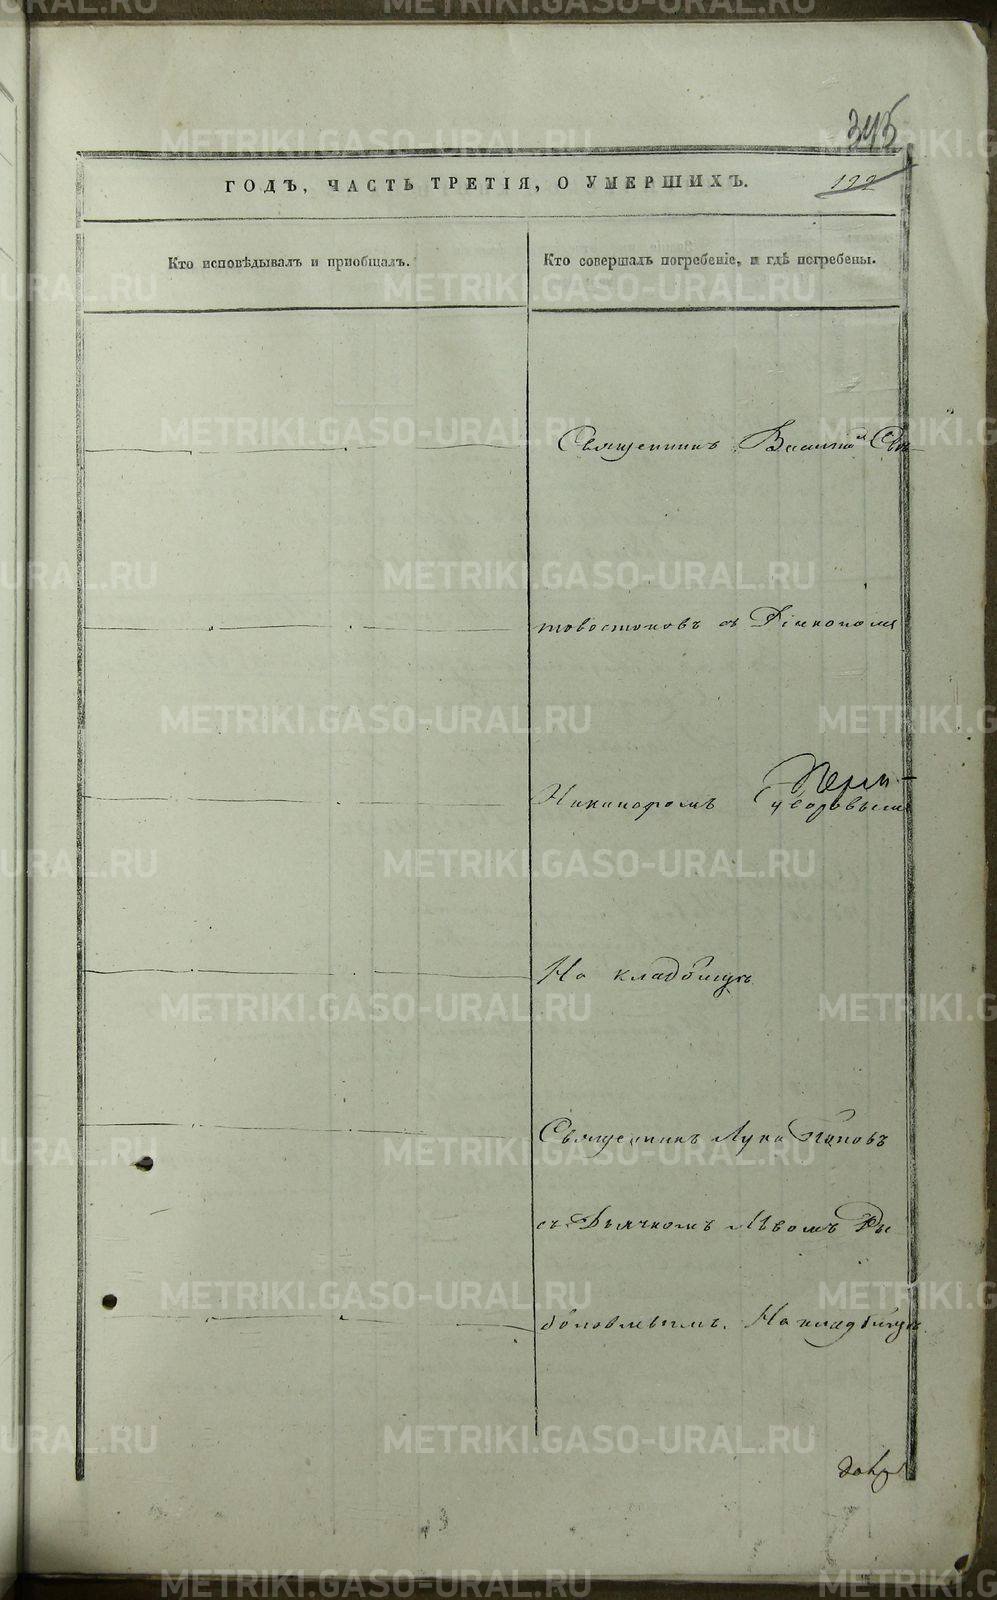 METRIKI.GASO-URAL.RU
345
122
ГОДЪ, ЧАСТЬ ТРЕТІЯ, О УМЕРШИХЪ.
Кто исповѣдывалъ и пріобщалъ.
Кто совершалъ погребеніе, и гдѣ погребены.
Священникъ Василій Свѣ-
товостоковъ съ Діакономъ
Никиноромъ Суворовымъ
На кладбищѣ
Священникъ Лука Поповъ
съ Дьячкомъ Львомъ Ры
боловлевымъ. На кладбищѣ.